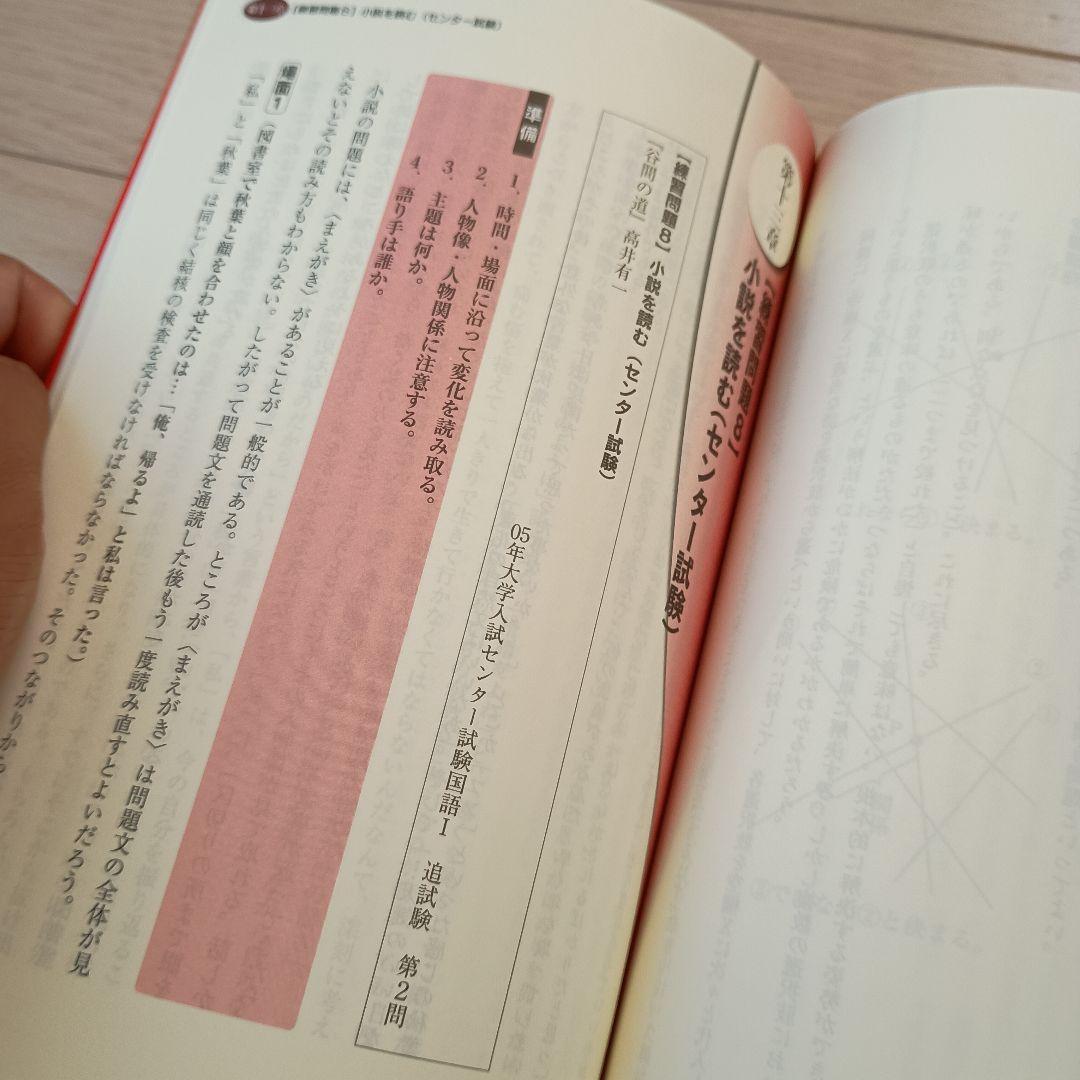 第十三章
【練習問題8】
小説を読む（センター試験）
【練習問題8】 小説を読む（センター試験）
「谷間の道」高井有一
05年大学入試センター試験国語Ⅰ 追試験 第2問
準備
1、時間・場面に沿って変化を読み取る。
2、人物像・人物関係に注意する。
3、主題は何か。
4、語り手は誰か。
小説の問題には、〈まえがき〉があることが一般的である。ところが〈まえがき〉は問題文の全体が見
えないとその読み方もわからない。したがって問題文を通読した後もう一度読み直すとよいだろう。
場面1 （図書室で秋葉と顔を合わせたのは…「俺、帰るよ」と私は言った。）
「私」と「秋葉」は同じく結核の検査を受けなければならなかった。そのつながりから
【練習問題8】小説を読む（センター試験）